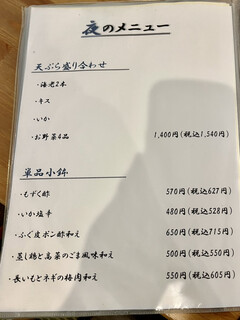 夜のメニュー
天ぷら盛り合わせ
・海老2本
・キス
・いか
・お野菜4品 1,400円(税込1,540円)
単品小鉢
・もずく酢 570円(税込627円)
・いか塩辛 480円(税込528円)
・ふぐ皮ポン酢和え 650円(税込715円)
・蒸し鶏と高菜のごま風味和え 500円(税込550円)
・長いもとネギの梅肉和え 550円(税込605円)